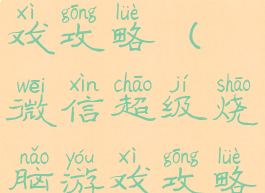 xì gōng lüè
戏攻略（
wēi xìn chāo jí shāo
微信超级烧
nǎo yóu xì gōng lüè
脑游戏攻略